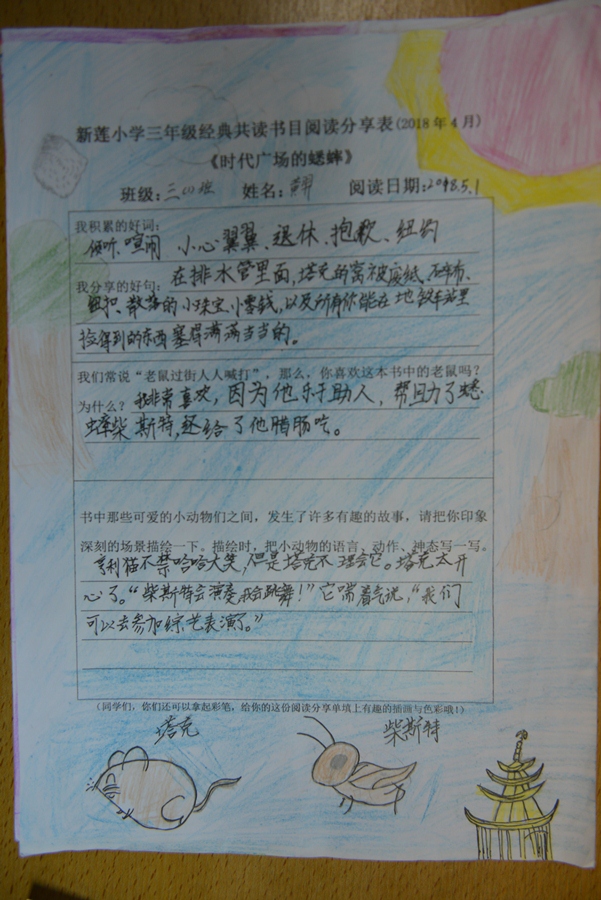 新莲小学三年级经典共读书目阅读分享表(2018年4月)
《时代广场的蟋蟀》
班级:三(4)班 姓名: 阅读日期:2018.5.1
我积累的好词:
倾听、喧闹 小心翼翼、退休、抱歉、纽约
我分享的好句: 在排水管里面,塔克的窝被废纸、碎布、
钮扣、散落的小珠宝、小零钱,以及所有你能在地铁车站里
捡得到的东西塞得满满当当的。
我们常说“老鼠过街人人喊打”,那么,你喜欢这本书中的老鼠吗?
为什么? 我非常喜欢,因为他乐于助人,帮助了蟋
蟀柴斯特,还给了他腊肠吃。
书中那些可爱的小动物们之间,发生了许多有趣的故事,请把你印象
深刻的场景描绘一下。描绘时,把小动物的语言、动作、神态写一写。
亨利猫不禁哈哈大笑,但是塔克不理会它。塔克太开
心了。“柴斯特会演奏我会跳舞!”它喘着气说,“我们
可以去参加综艺表演了。”
(同学们,你们还可以拿起彩笔,给你的这份阅读分享单填上有趣的插画与色彩哦!)
塔克 柴斯特